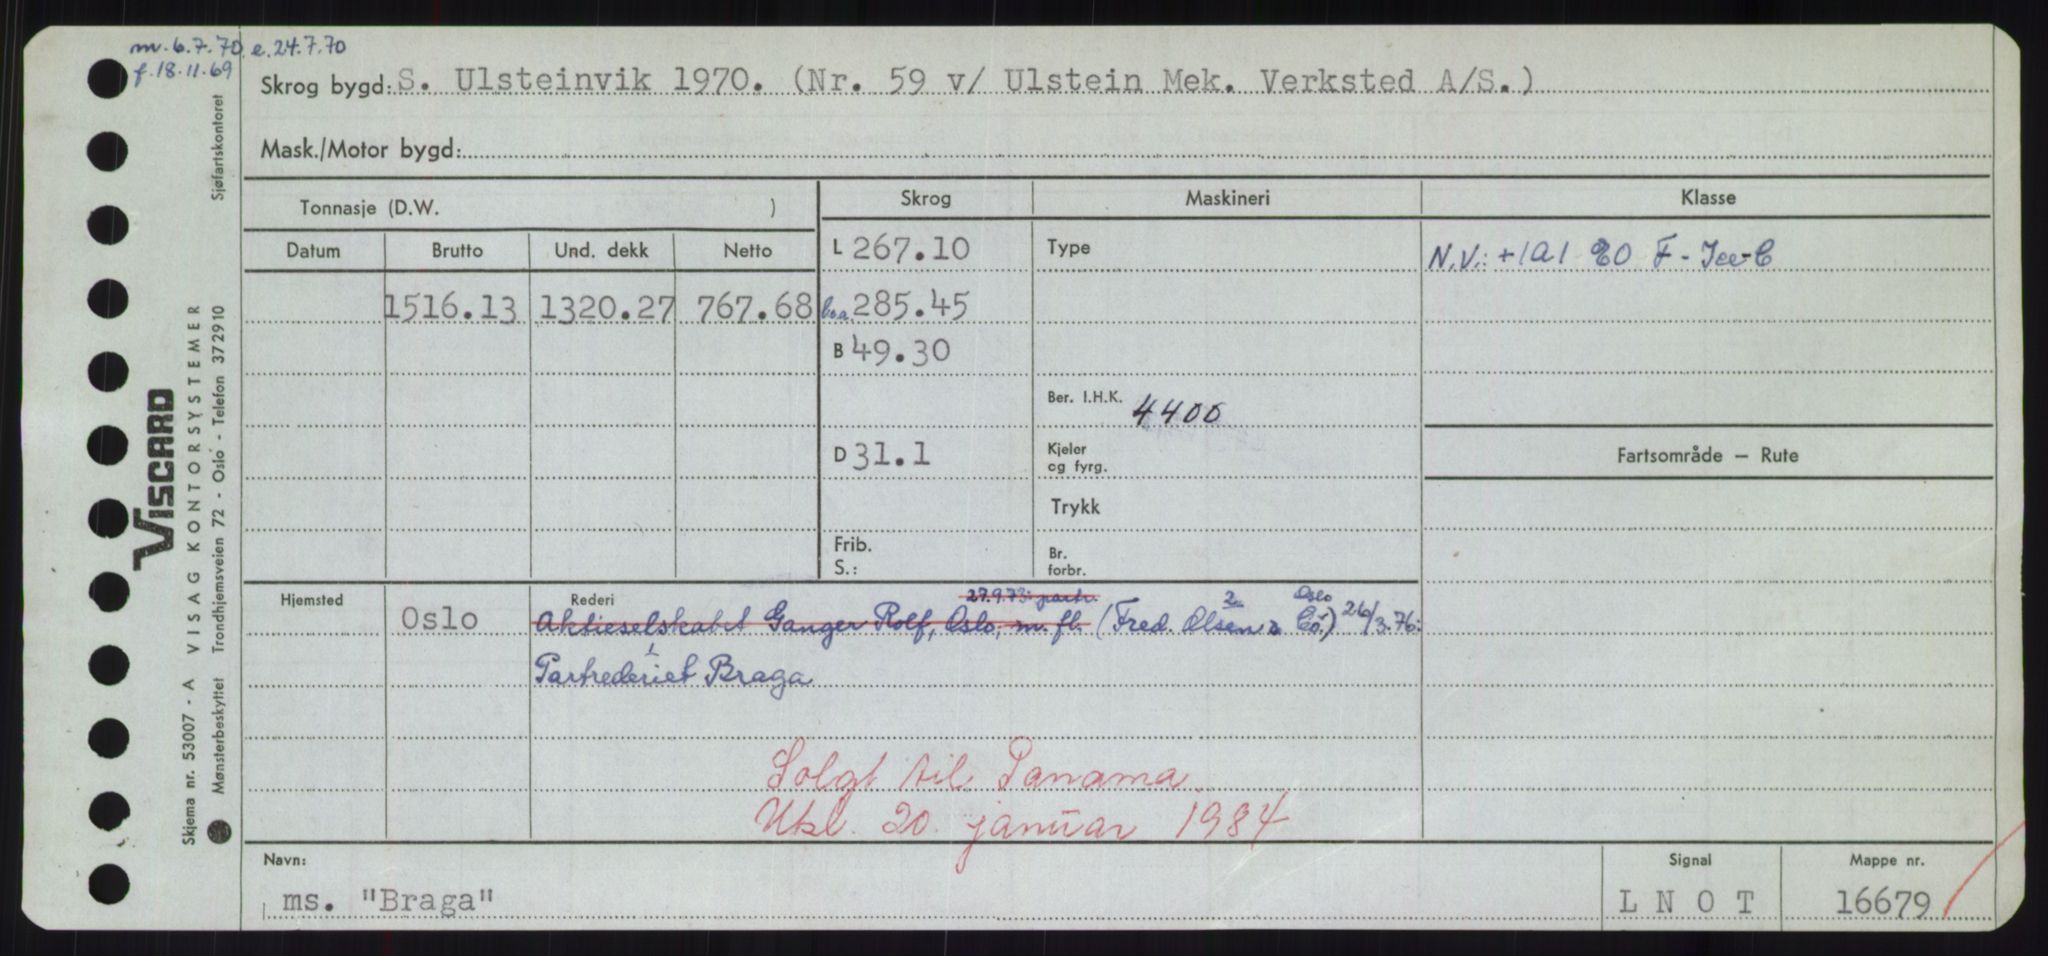 m. 6.7.70 e. 24.7.70
f. 18.11.69
Skrog bygd: S. Ulsteinvik 1970. (Nr. 59 v/ Ulstein Mek. Verksted A/S.)
Mask./Motor bygd:
Tonnasje (D.W. )
Skrog Maskineri Klasse
Datum Brutto Und. dekk Netto
L 267.10 Type N.V.: +1A1 F - Ice-C
1516.13 1320.27 767.68 l.o.a. 285.45
B 49.30
Ber. I.H.K. 4400
D 31.1 Kjeler og fyrg. Fartsområde – Rute
Trykk
Frib.
S.:
Br. forbr.
Hjemsted Oslo Rederi
27.9.73: partr. 2 Oslo
Aktieselskabet Ganger Rolf, Oslo, m. fl. (Fred. Olsen & Co.) 26/3.76:
Partrederiet Braga
Solgt til Panama.
Utkl. 20. januar 1984
Navn: Signal Mappe nr.
ms. "Braga" L N O T 16679
VISCARD
Skjema nr. 53007 - A VISAG KONTORSYSTEMER
Mønsterbeskyttet Trondhjemsveien 72 - Oslo - Telefon 372910 Sjøfartskontoret